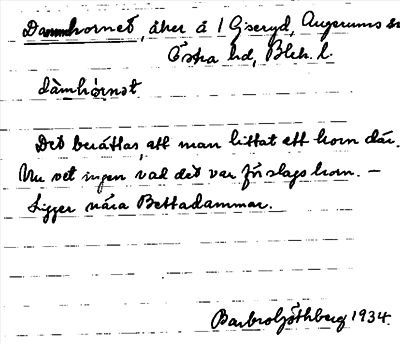 Dammhornet, åker å 1 Gseryd, Augerums sn
Östra hd, Blek. l.
dàmhó̱rnət
Det berättas, att man hittat ett horn där.
Nu vet ingen vad det var för slags horn. —
Ligger nära Bettadammar.
Barbro Göthberg 1934.